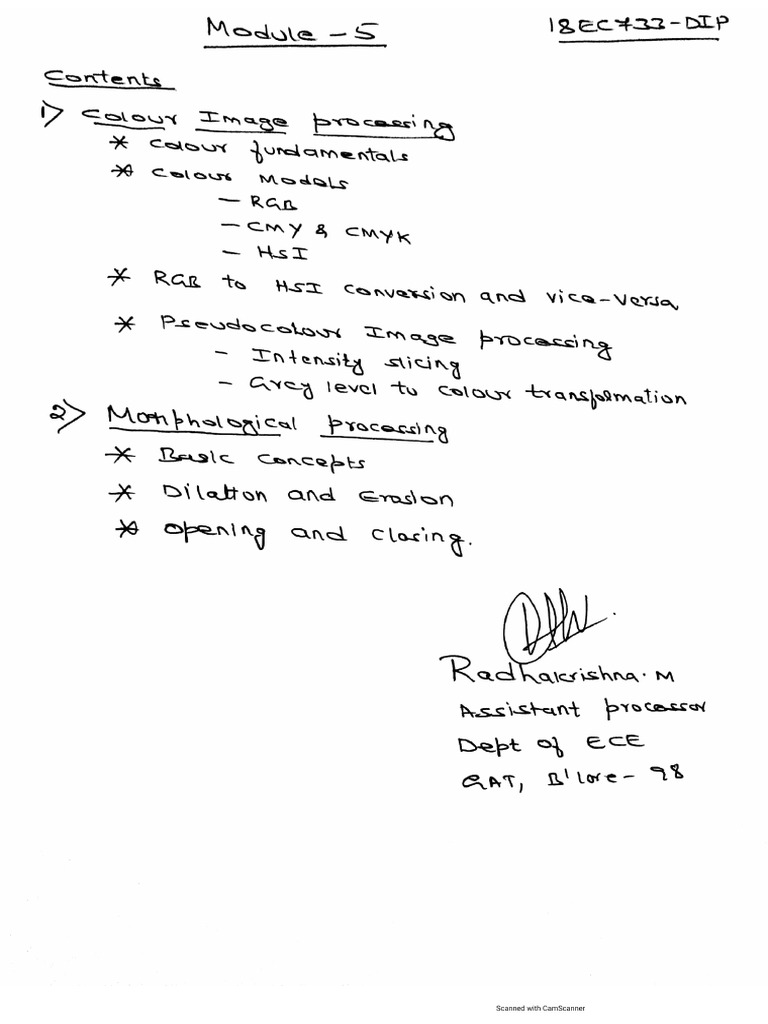 Module - 5
18EC733-DIP
Contents
1) Colour Image processing
* Colour fundamentals
* Colour Models
- RGB
- CMY & CMYK
- HSI
* RGB to HSI conversion and vice-versa
* Pseudocolour Image processing
- Intensity slicing
- Grey level to colour transformation
2) Morphological processing
* Basic concepts
* Dilation and Erosion
* Opening and closing.
Radhakrishna. M
Assistant processor
Dept of ECE
GAT, B'lore - 98
Scanned with CamScanner